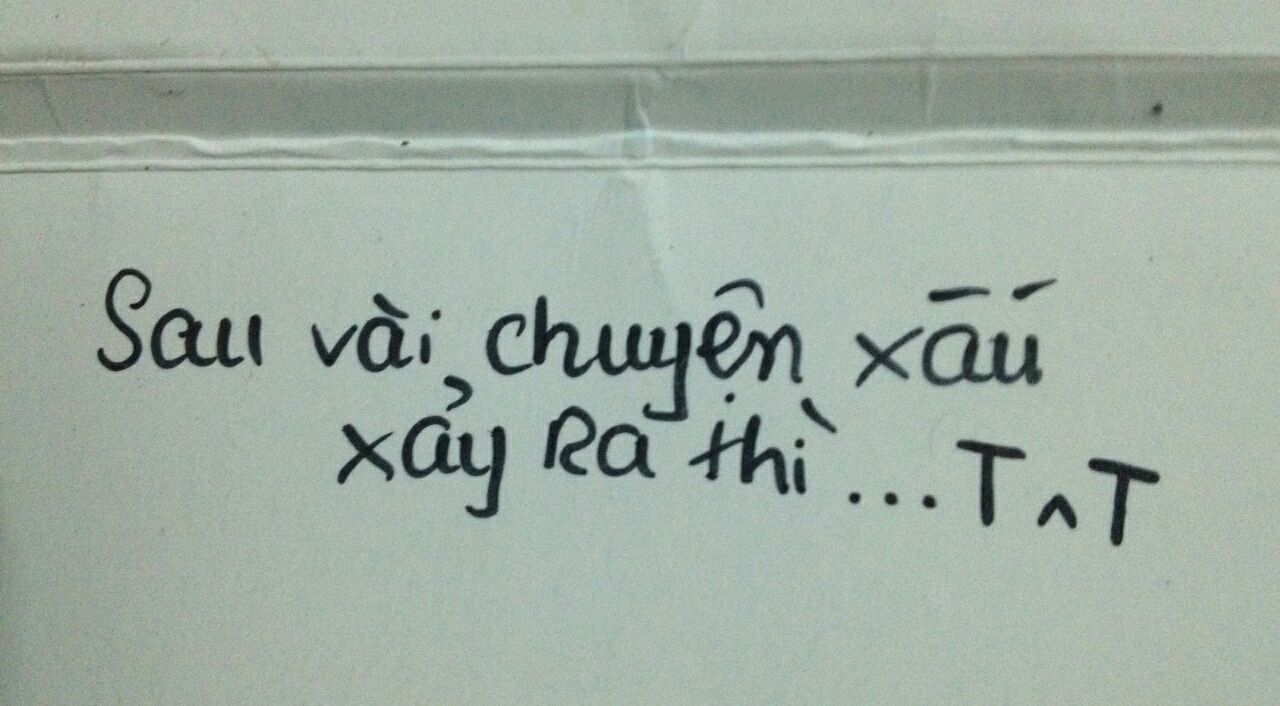 Sau vài chuyện xấu
xảy Ra thì...T^T